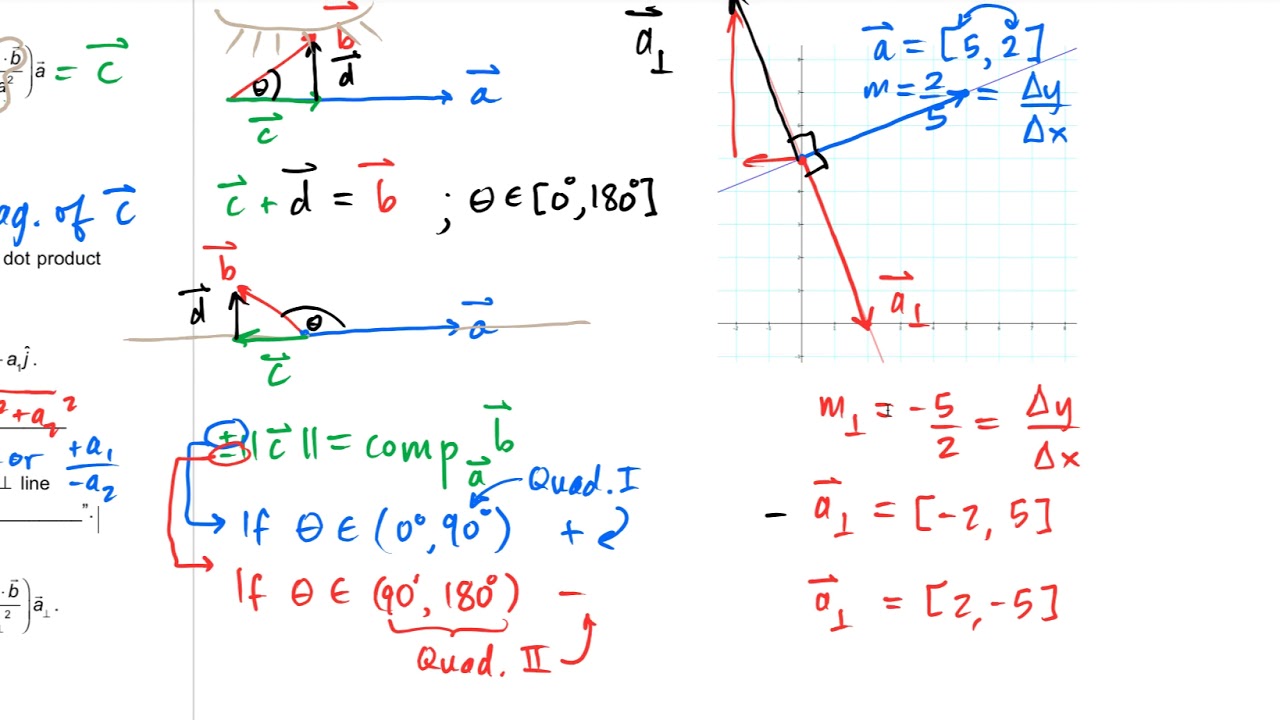 · b⃗
a²
)a⃗ = c⃗
ag. of c⃗
dot product
a₁ĵ.
² + a₂²
or +a₁
−a₂
⊥ line
”.
· b⃗
²
)a⃗⊥.
b⃗
θ
d⃗
a⃗
c⃗
c⃗ + d⃗ = b⃗ ; θ ∈ [0°, 180°]
b⃗
d⃗
θ
a⃗
c⃗
±||c⃗|| = comp a⃗ b⃗
Quad. I
If θ ∈ (0°, 90°) +
If θ ∈ (90°, 180°) −
Quad. II
a⃗⊥
a⃗ = [5, 2]
m = 2/5 = Δy/Δx
a⃗⊥
m⊥ = -5/2 = Δy/Δx
− a⃗⊥ = [-2, 5]
a⃗⊥ = [2, -5]